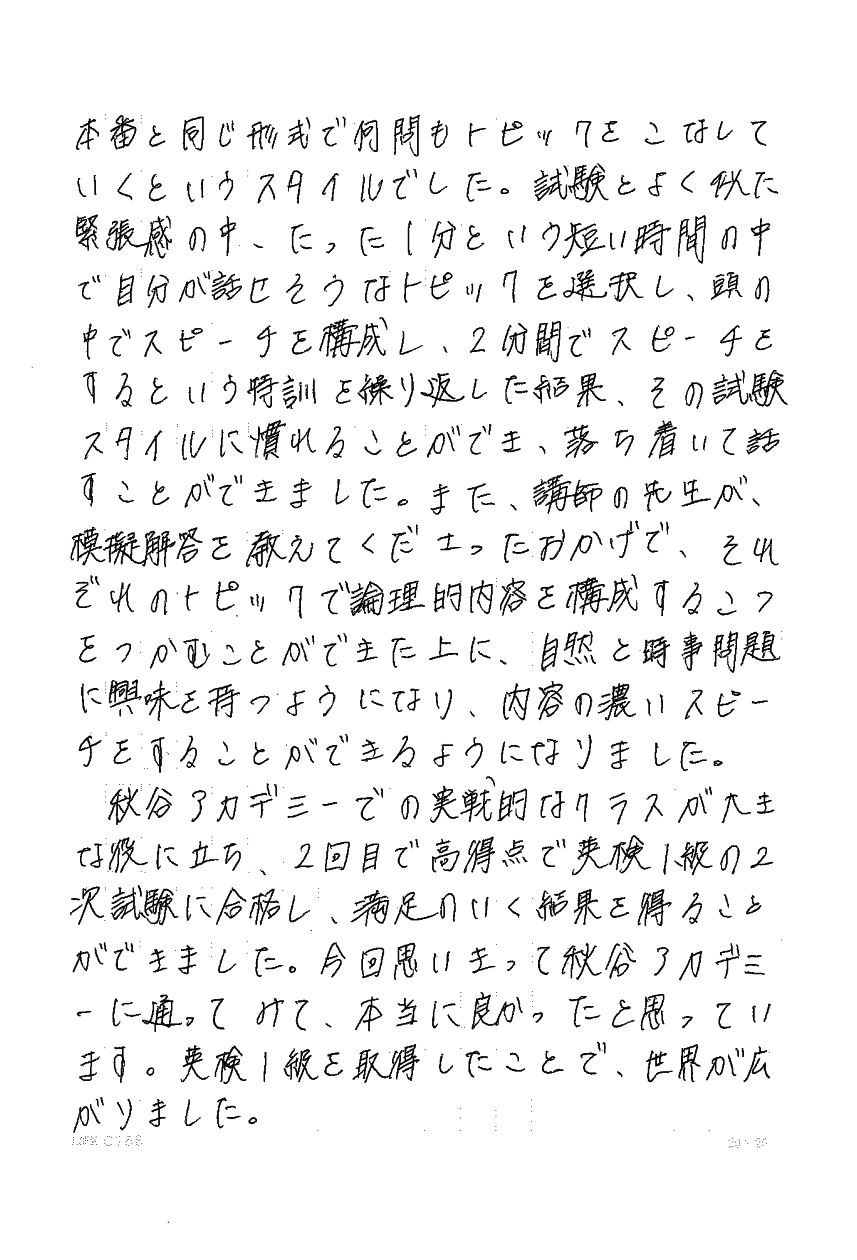 本番と同じ形式で何問もトピックをこなして
いくというスタイルでした。試験とよく似た
緊張感の中、たった1分という短い時間の中
で自分が話せそうなトピックを選択し、頭の
中でスピーチを構成し、2分間でスピーチを
するという特訓を繰り返した結果、その試験
スタイルに慣れることができ、落ち着いて話
すことができました。また、講師の先生が、
模擬解答を教えてくださったおかげで、それ
ぞれのトピックで論理的内容を構成するこつ
をつかむことができた上に、自然と時事問題
に興味を持つようになり、内容の濃いスピー
チをすることができるようになりました。
秋谷アカデミーでの実戦的なクラスが大き
な役に立ち、2回目で高得点で英検1級の2
次試験に合格し、満足のいく結果を得ること
ができました。今回思いきって秋谷アカデミ
ーに通ってみて、本当に良かったと思ってい
ます。英検1級を取得したことで、世界が広
がりました。
LIFE C155 20×20